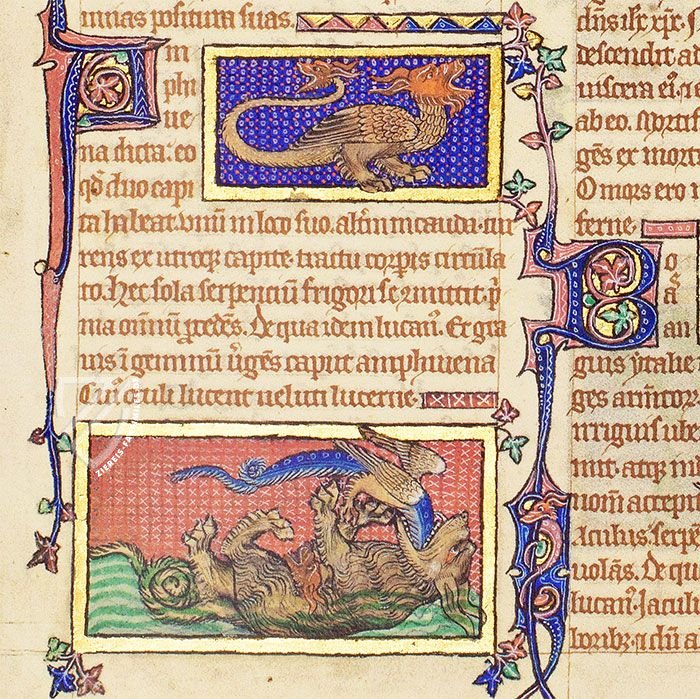 nuas positum suas.
In
phi
ue
na dicta: eo
qd duo capi
ta habeat. unum in loco suo. altm in cauda. cur
rens ex utroq; capite. tractu corpis circula
to. Hec sola serpenciū frigori se mittit. p
ma omniū
De qua idem lucan⁹. Et gra
uis ī geminum ūgēs caput amphiuena
Cui⁹ oculi lucent ueluti lucerne.
dn̄s
descendit ad
uiscera ei⁹.
ab eo. Mortif
gēs ex morti
O mors ero
ferne.
Bo
a
au
guis ytalie
ges armtor.
irriguis ube
mit. atq;
nom̄ accepit
Iaculus serpe
uolās. De qu
lucan⁹. Iaculi
ZIEREIS